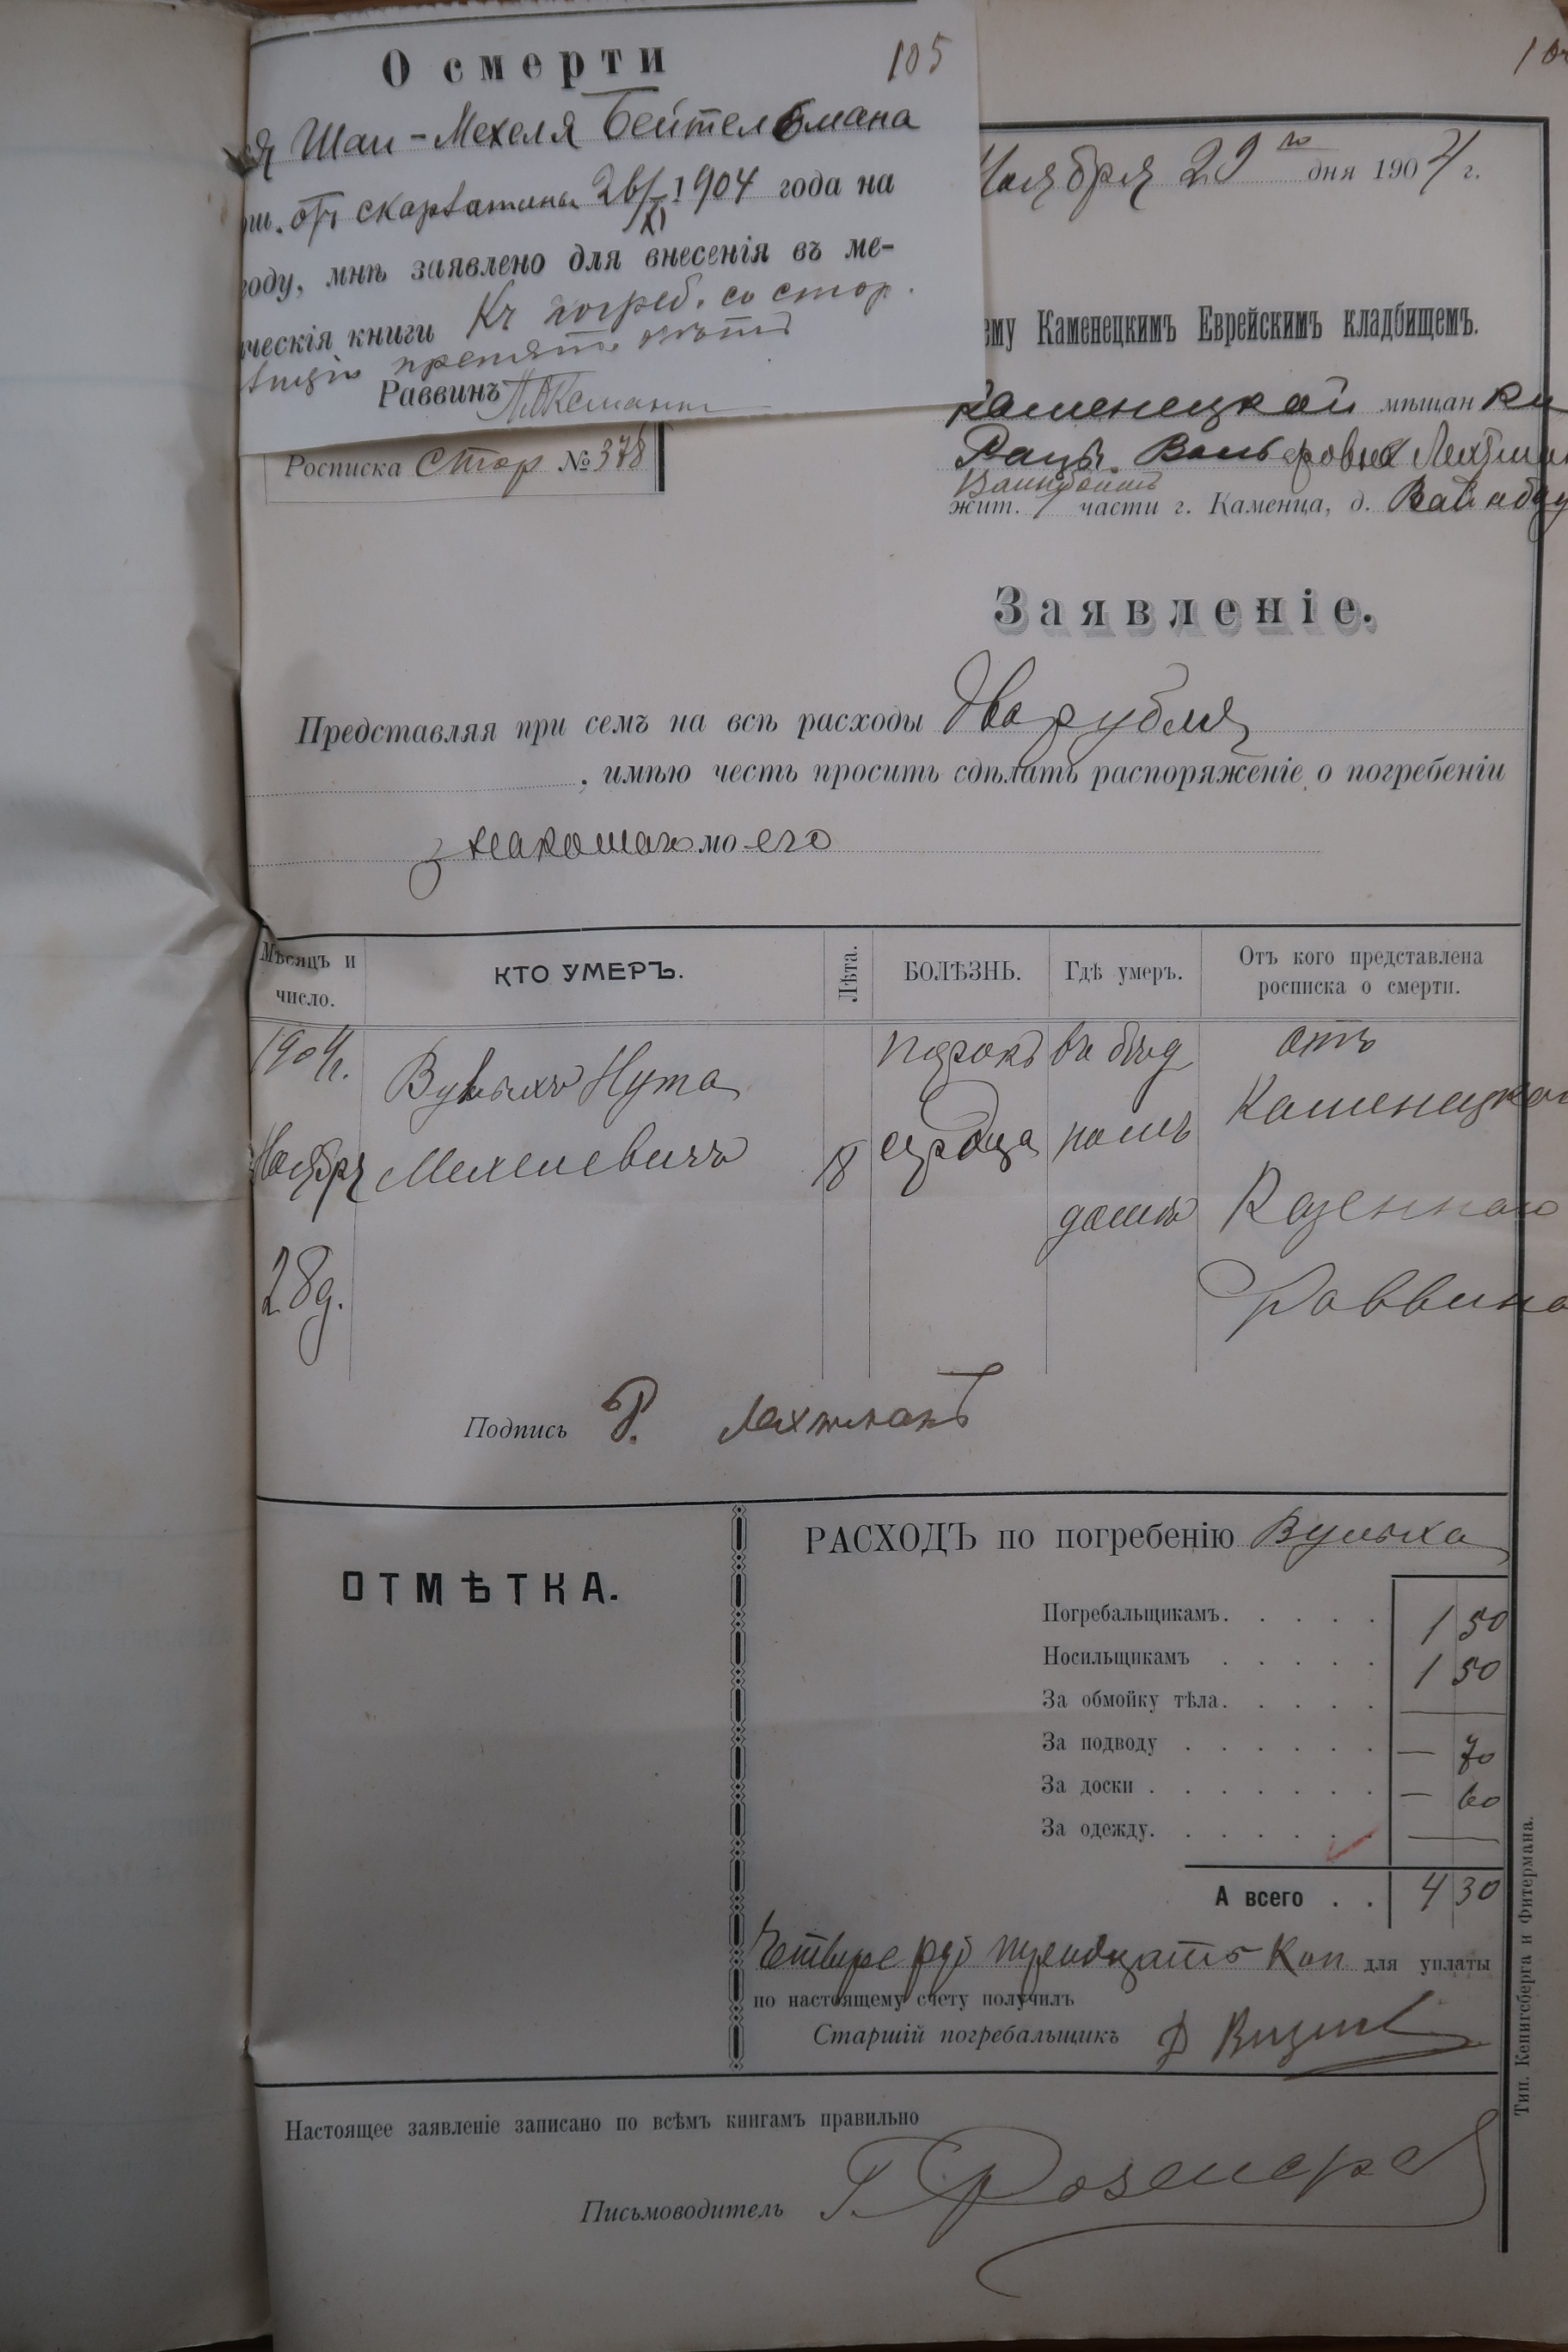 О смерти
105
Шаи-Мехеля Бейтельмана
отъ скарлатины 26/XI 1904 года на
году, мнѣ заявлено для внесенія въ ме-
ческія книги Къ погреб. со стор.
препятс. нѣтъ
Раввинъ
10
Ноября 29 го дня 1904 г.
ему Каменецкимъ Еврейскимъ кладбищемъ.
Росписка Стор №378
Каменецкой мѣщанки
Вольфовны
жит. 1 части г. Каменца, д.
Заявленіе.
Представляя при семъ на всѣ расходы два рубля
, имѣю честь просить сдѣлать распоряженіе о погребеніи
знакомаго моего
Мѣсяцъ и число.
КТО УМЕРЪ.
Лѣта.
БОЛѢЗНЬ.
Гдѣ умеръ.
Отъ кого представлена росписка о смерти.
1904 г. Ноябрь 28 д.
Вулыхъ Нута Мехелевичъ
18
порокъ сердца
домѣ
отъ Каменецкаго Казеннаго Раввина
Подпись Р. Лехтманъ
ОТМѢТКА.
РАСХОДЪ по погребенію Вулыха
Погребальщикамъ. . . . . 1 50
Носильщикамъ . . . . . 1 50
За обмойку тѣла. . . . . —
За подводу . . . . . . — 70
За доски . . . . . . . — 60
За одежду. . . . . . —
А всего . . 4 30
Четыре руб тридцать коп для уплаты
по настоящему счету получилъ
Старшій погребальщикъ
Настоящее заявленіе записано по всѣмъ книгамъ правильно
Письмоводитель
Тип. Кенигсберга и Фитермана.